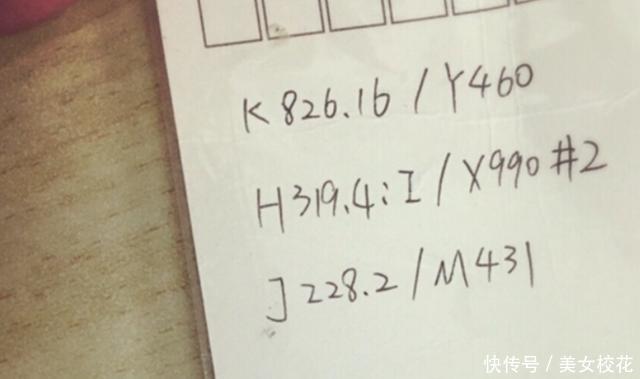 K826.16/Y460
H319.4:I/X990#2
J228.2/M431
快传号/美女校花